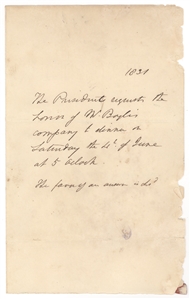 1831
The President requests the
honor of Mr Boyle's
company to dinner on
Saturday the 4th of June
at 5 oclock
The favor of an answer is